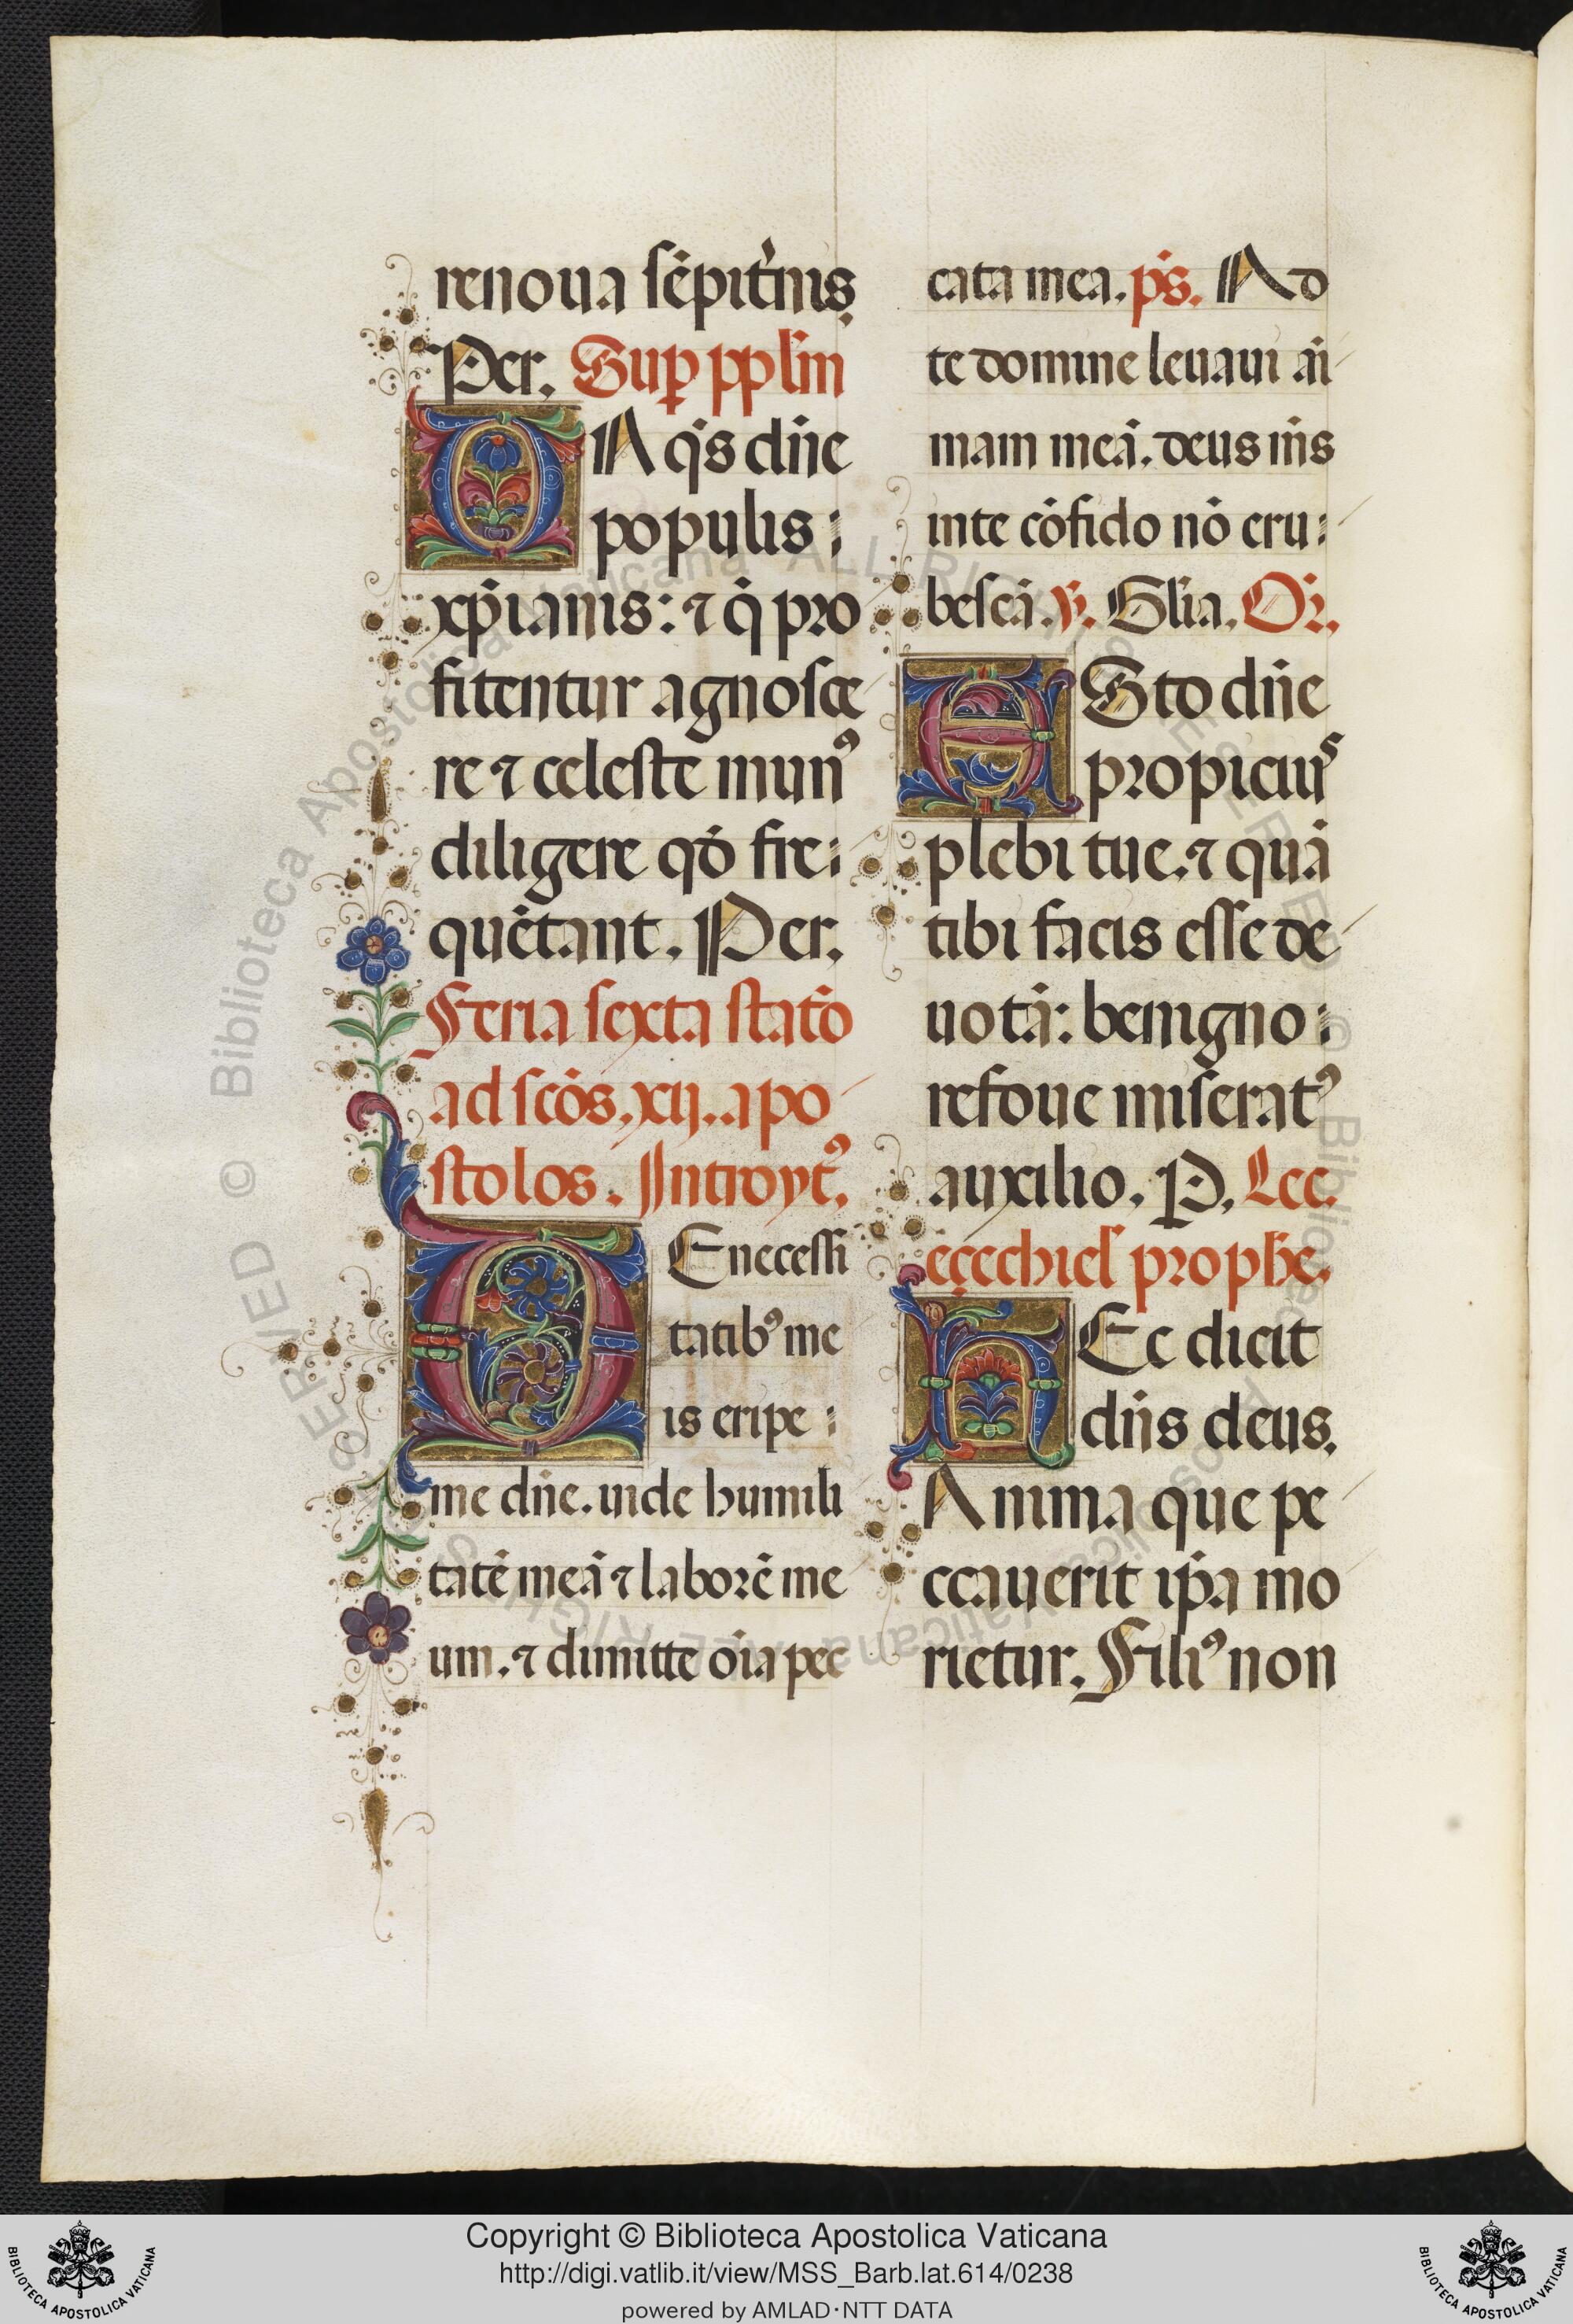 renoua sēpit'nis
Per. Sup pplm̄
DA q̄s dn̄e
populis:
xp̄ianis: ⁊ q̄ pro
fitentur agnosce
re ⁊ celeste munꝰ
diligere qō fre:
quētant. Per.
Feria sexta statō
ad scōs. xij. apo
stolos. Introytꝰ.
DE necessi
tatibꝰ me
is eripe:
me dn̄e. uide humili
tatē meā ⁊ laborē me
um. ⁊ dimitte oīa pec
cata mea. ps. Ad
te domine leuaui ai
mam meā. deus ms̄
in te cōfido nō eru:
bescā. v. Gl̄ia. Or̄.
ESto dn̄e
propicius
plebi tue. ⁊ quā
tibi facis esse de
uotā: benigno:
refoue miseratꝰ
auxilio. P. Lec.
eçechiel' prophe.
hEc dicit
dn̄s deus.
Anima que pe
ccauerit ip̄a mo
rietur. Filiꝰ non
Copyright © Biblioteca Apostolica Vaticana
http://digi.vatlib.it/view/MSS_Barb.lat.614/0238
powered by AMLAD·NTT DATA
BIBLIOTECA APOSTOLICA VATICANA
BIBLIOTECA APOSTOLICA VATICANA